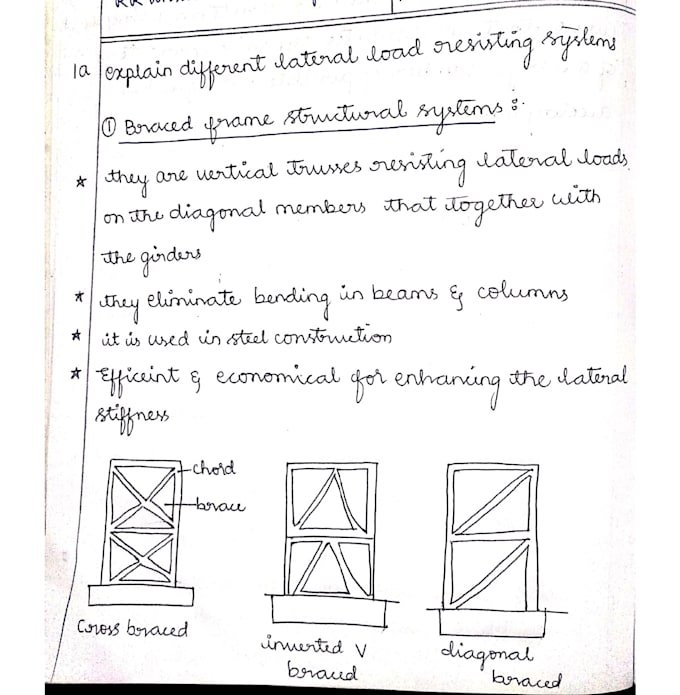 1a explain different lateral load resisting systems
① Braced frame structural systems :
* they are vertical trusses resisting lateral loads
on the diagonal members that together with
the girders
* they eliminate bending in beams & columns
* it is used in steel construction
* Efficeint & economical for enhancing the lateral
stiffness
chord
brace
Cross braced
inverted V
braced
diagonal
braced